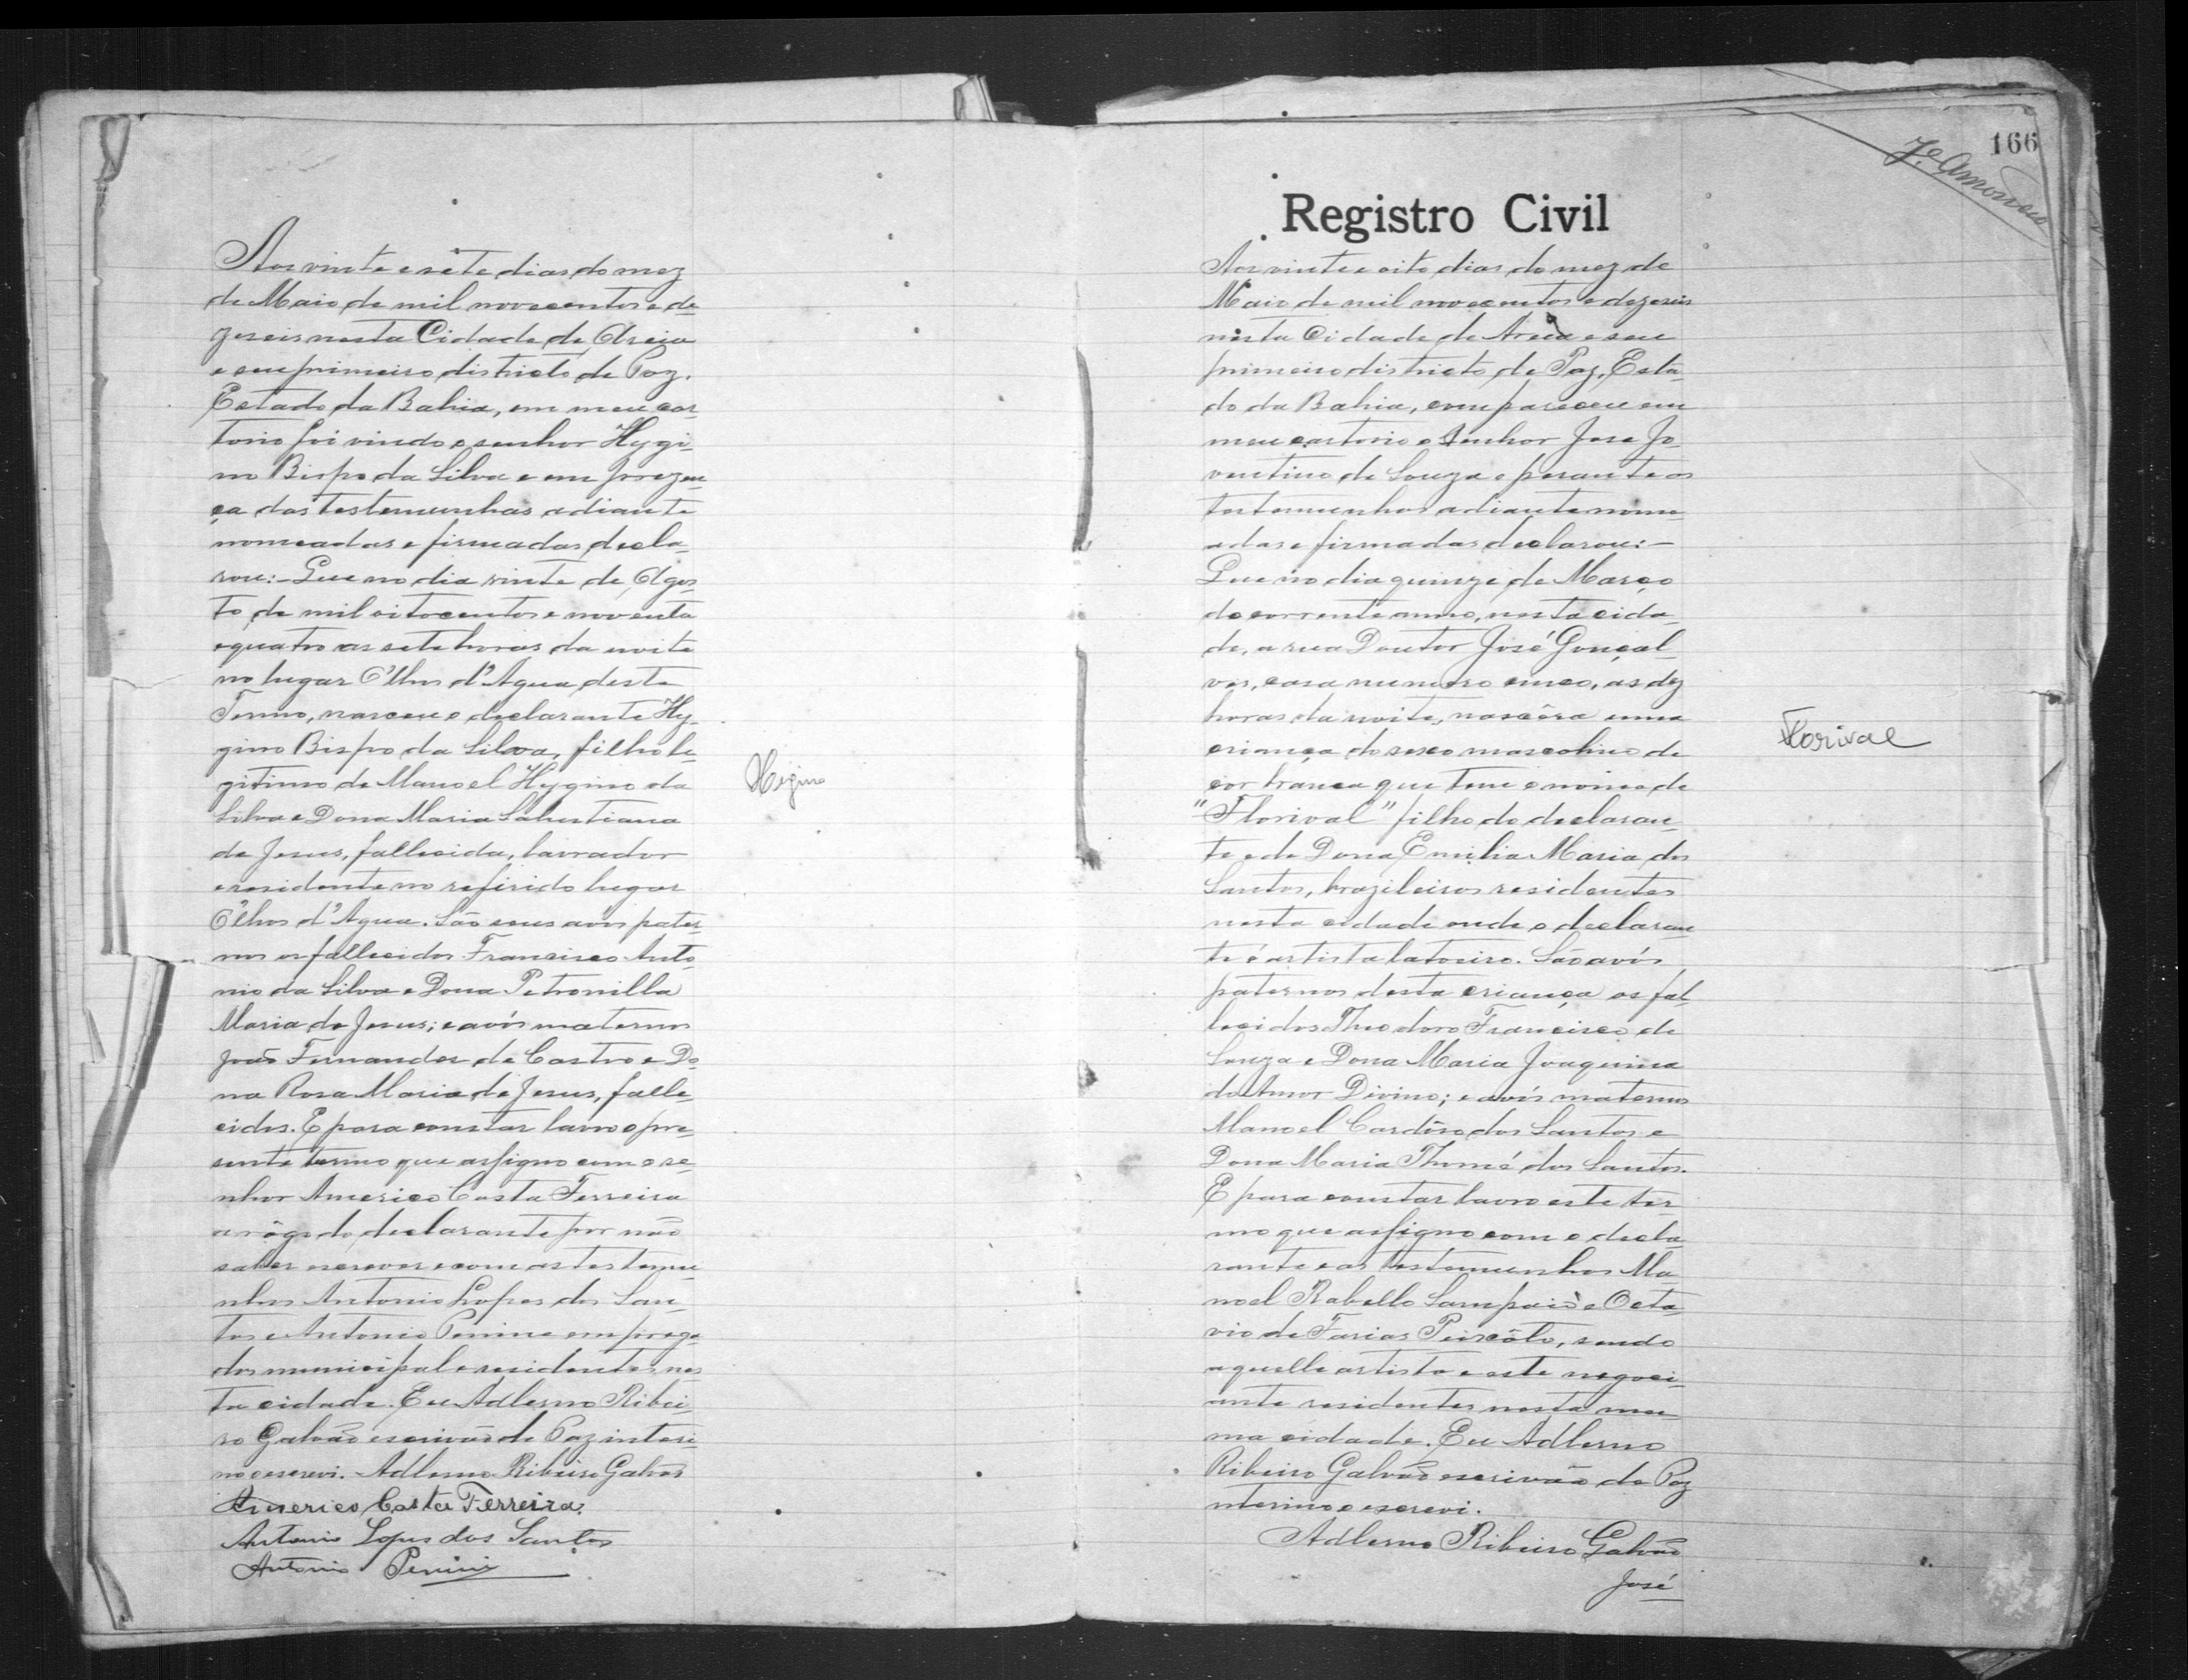 Aos vinte e sete dias do mez
de Maio de mil novecentos e de
zeseis nesta Cidade de Areia
e seu primeiro districto de Paz,
Estado da Bahia, em meu car
torio foi vindo o senhor Hygi
no Bispo da Silva e em prezen
ça das testemunhas adiante
nomeadas e firmadas decla
rou:- Que no dia vinte de Agos
to de mil oitocentos e noventa
e quatro as sete horas da noite
no lugar Olhos d'Agua deste
Termo, nasceu o declarante Hy
gino Bispo da Silva, filho le
gitimo de Manoel Hygino da
Silva e Dona Maria Salustiana
de Jesus, fallecida, lavrador
e residente no referido lugar
Olhos d'Agua. São seus avós pater
nos os fallecidos Francisco Anto
nio da Silva e Dona Petronilla
Maria de Jesus; e avós maternos
João Fernandes de Castro e Do
na Rosa Maria de Jesus, falle
cidos. E para constar lavro o pre
sente termo que assigno com o se
nhor Americo Costa Ferreira
a rôgo do declarante por não
saber escrever e com as testemu
nhas Antonio Lopes dos San
tos e Antonio Penine emprega
dos municipal e residentes nes
ta cidade. Eu Adlerno Ribei
ro Galvão escrivão de Paz interi
no o escrevi. Adlerno Ribeiro Galvão
Americo Costa Ferreira.
Antonio Lopes dos Santos
Antonio Penini
Higino
166
Registro Civil
Aos vinte e oito dias do mez de
Maio de mil novecentos e dezeseis
nesta Cidade de Areia e seu
primeiro districto de Paz, Esta
do da Bahia, compareceu em
meu cartorio o senhor José Jo
ventino de Souza e perante as
testemunhas adiante nome
adas e firmadas declarou:-
Que no dia quinze de Março
do corrente anno, nesta cida
de, a rua Doutor José Gonçal
ves, casa numero cinco, as dez
horas da noite, nascêra uma
criança do sexo mascolino de
cor branca que tem o nome de
"Florival" filho do declaran
te e de Dona Emilia Maria dos
Santos, brazileiros residentes
nesta cidade onde o declaran
te é artista latoeiro. São avós
paternos desta criança os fal
lecidos Theodoro Francisco de
Souza e Dona Maria Joaquina
do Amor Divino; e avós maternos
Manoel Cardôso dos Santos e
Dona Maria Thomé dos Santos.
E para constar lavro este ter
mo que assigno com o decla
rante e as testemunhas Ma
noel Rabello Sampaio e Octa
vio de Farias, sendo
aquelle artista e este negoci
ante residentes nesta mes
ma cidade. Eu Adlerno
Ribeiro Galvão escrivão de Paz
interino o escrevi.
Adlerno Ribeiro Galvão
José
Florival